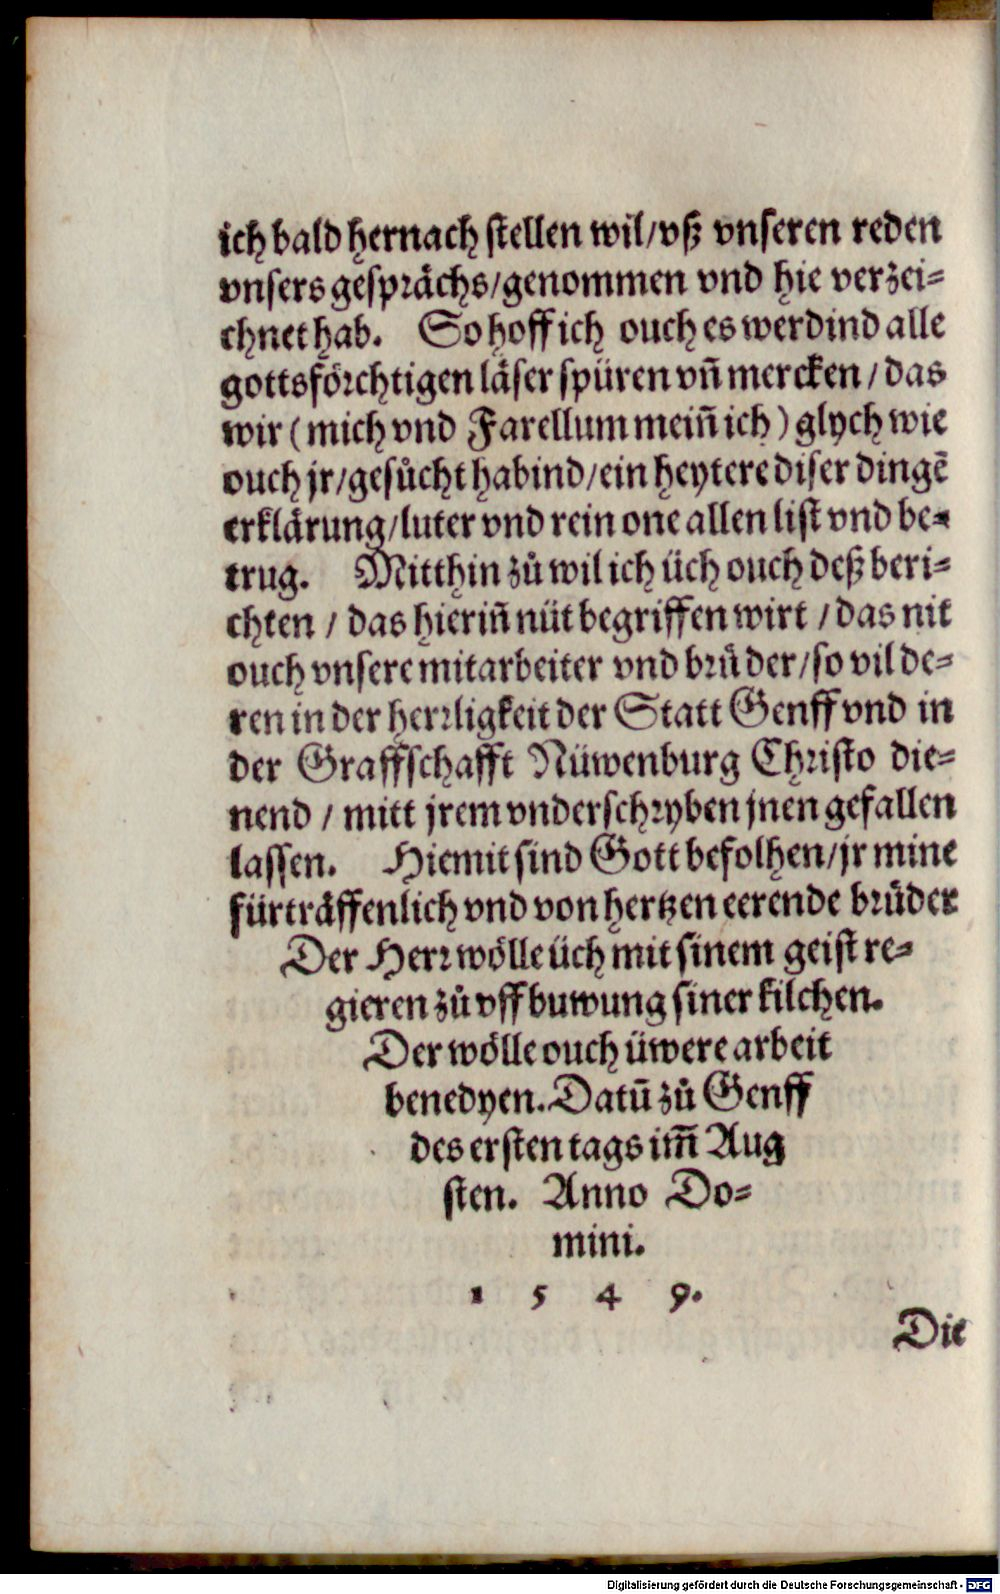 ich bald hernach stellen wil/vß vnseren reden
vnsers gesprächs/genommen vnd hie verzei⸗
chnet hab. So hoff ich ouch es werdind alle
gottsförchtigen läser spüren vn̄ mercken/das
wir (mich vnd Farellum mein̄ ich) glych wie
ouch jr/gesůcht habind/ein heytere diser dingē
erklärung/luter vnd rein one allen list vnd be⸗
trug. Mitthin zů wil ich üch ouch deß beri⸗
chten / das hierin̄ nüt begriffen wirt / das nit
ouch vnsere mitarbeiter vnd brůder/so vil de⸗
ren in der herrligkeit der Statt Genff vnd in
der Graffschafft Nüwenburg Christo die⸗
nend / mitt jrem vnderschryben jnen gefallen
lassen. Hiemit sind Gott befolhen/jr mine
fürträffenlich vnd von hertzen eerende brüder
Der Herr wölle üch mit sinem geist re⸗
gieren zů vffbuwung siner kilchen.
Der wölle ouch üwere arbeit
benedyen. Datū zů Genff
des ersten tags im̄ Aug
sten. Anno Do⸗
mini.
1 5 4 9.
Die
Digitalisierung gefördert durch die Deutsche Forschungsgemeinschaft - DFG